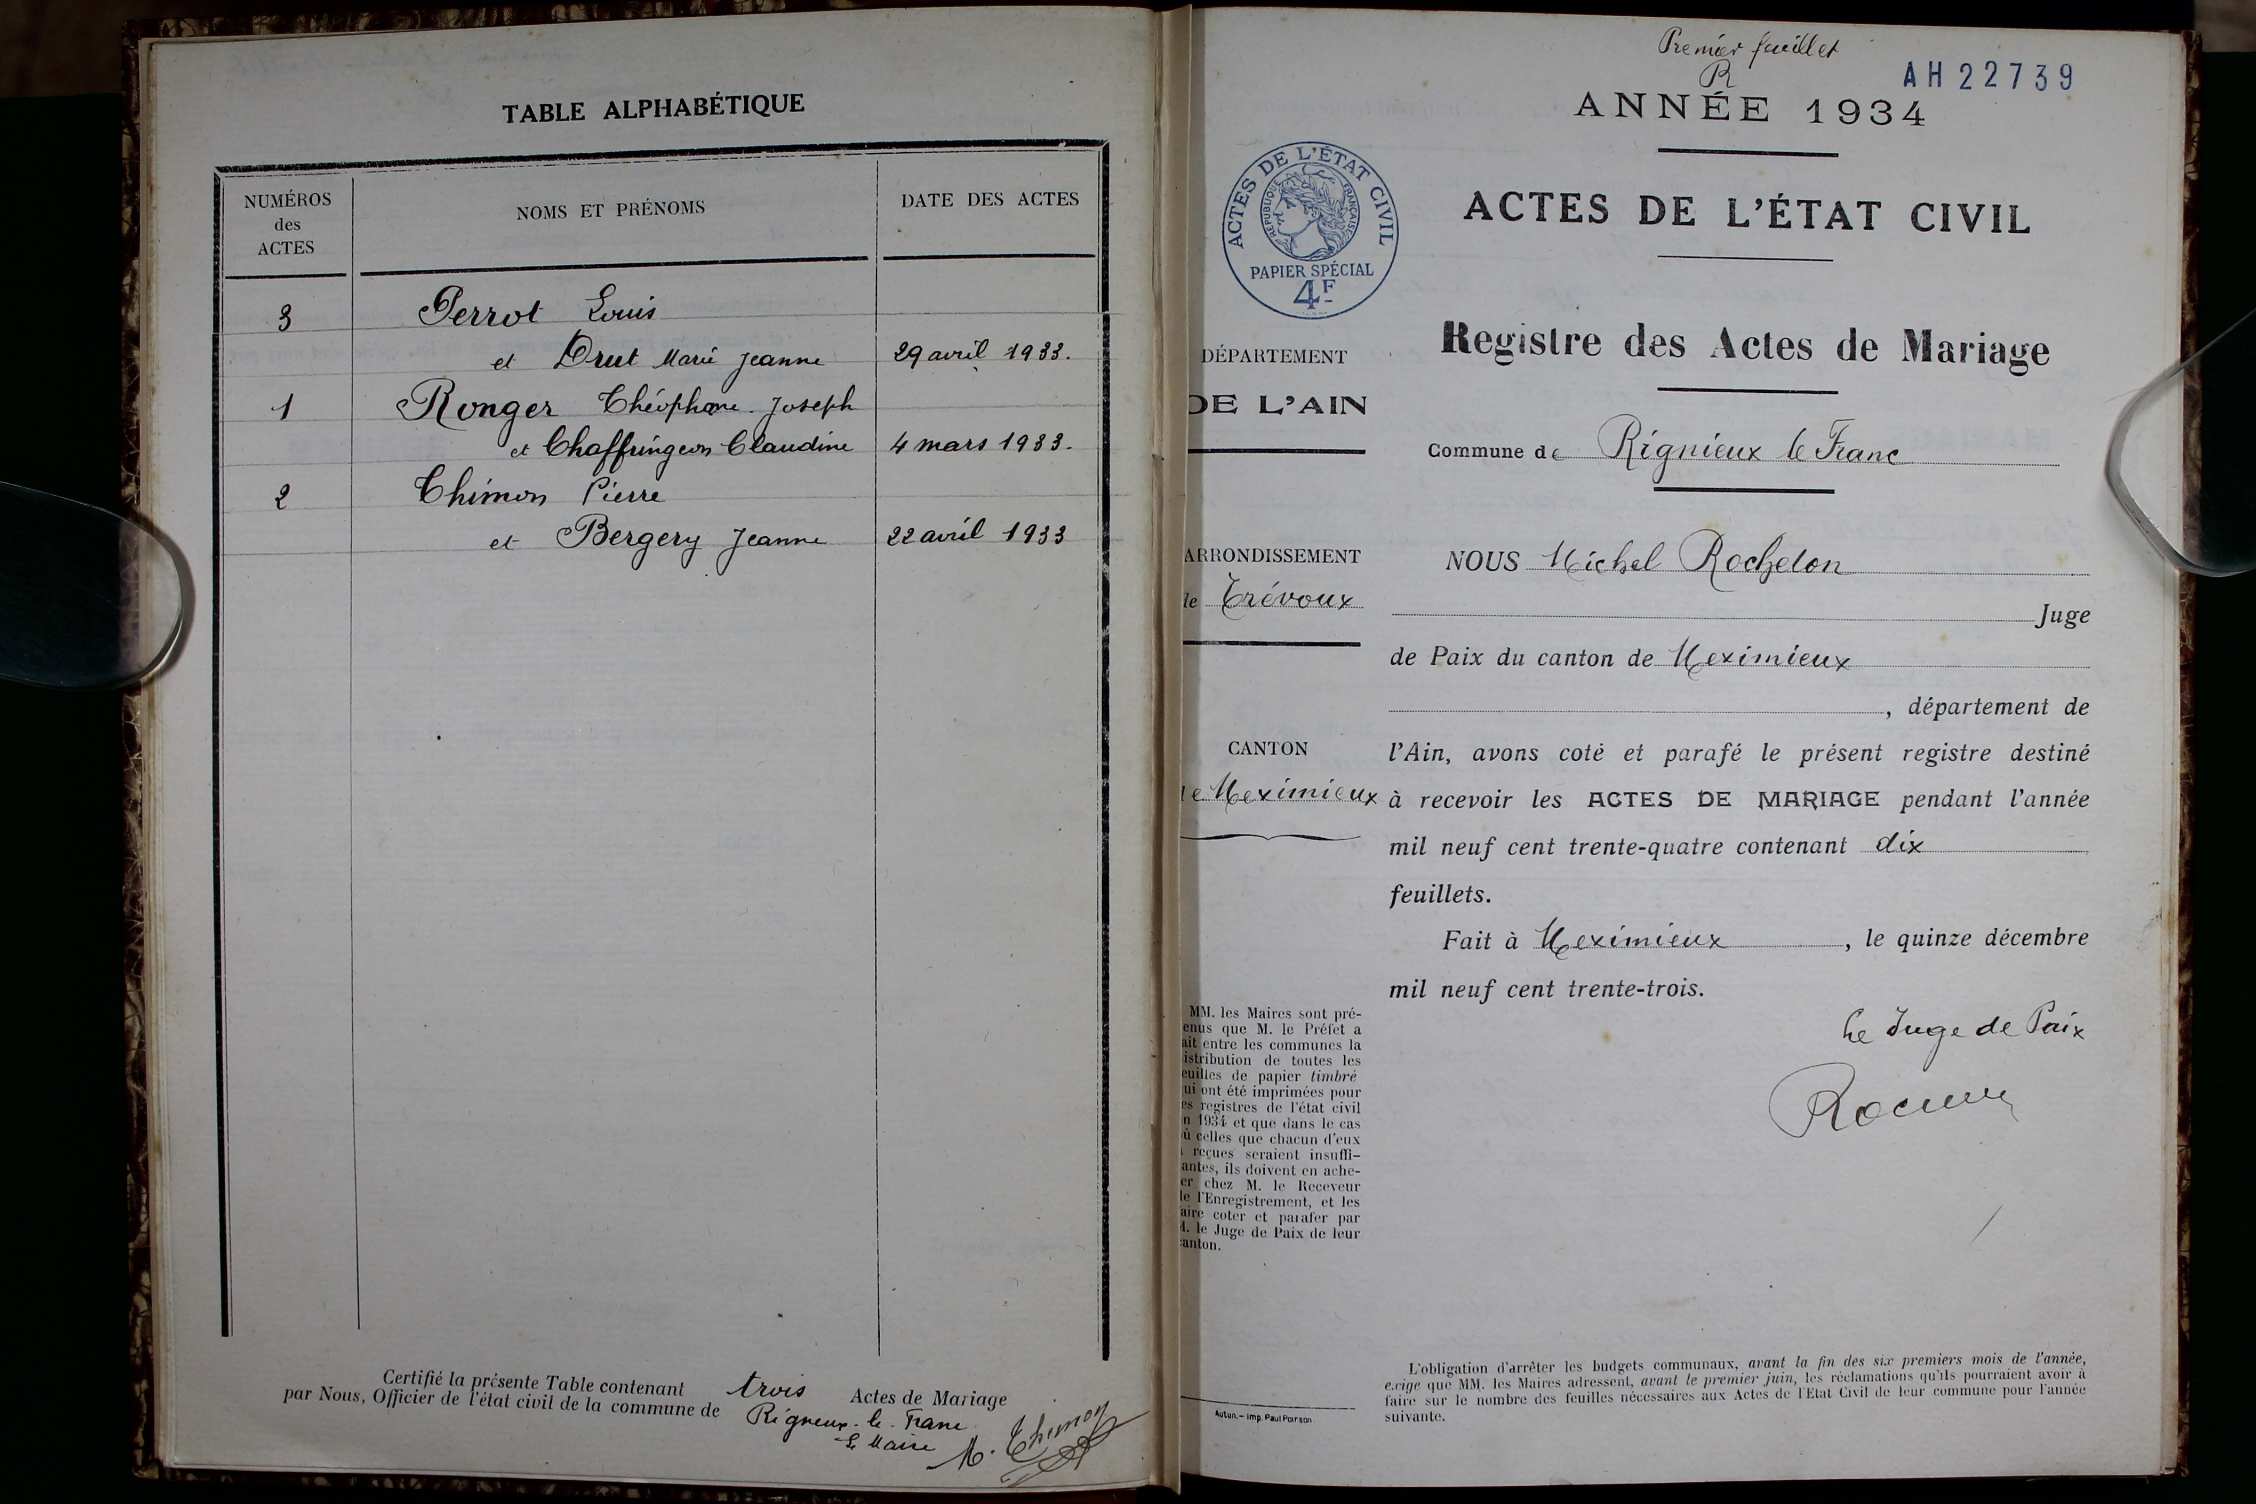 TABLE ALPHABÉTIQUE
NUMÉROS
des
ACTES
NOMS ET PRÉNOMS
DATE DES ACTES
3 Perrot Louis
et Drut Marie Jeanne 29 avril 1933.
1 Ronger Théophane Joseph
et Chaffringeon Claudine 4 mars 1933.
2 Thimon Pierre
et Bergery Jeanne 22 avril 1933
Certifié la présente Table contenant trois Actes de Mariage
par Nous, Officier de l'état civil de la commune de Rigneux-le-Franc
Le Maire
M. Thimon
Premier feuillet
R
AH22739
ANNÉE 1934
ACTES DE L'ÉTAT CIVIL
RÉPUBLIQUE FRANÇAISE
PAPIER SPÉCIAL
4F
ACTES DE L'ÉTAT CIVIL
Registre des Actes de Mariage
DÉPARTEMENT
DE L'AIN
Commune de Rignieux le Franc
ARRONDISSEMENT
de Trévoux
CANTON
de Meximieux
NOUS Michel Rochelon
Juge
de Paix du canton de Meximieux
, département de
l'Ain, avons coté et parafé le présent registre destiné
à recevoir les ACTES DE MARIAGE pendant l'année
mil neuf cent trente-quatre contenant dix
feuillets.
Fait à Meximieux, le quinze décembre
mil neuf cent trente-trois.
Le Juge de Paix
MM. les Maires sont pré-
enus que M. le Préfet a
ait entre les communes la
istribution de toutes les
euilles de papier timbré
ui ont été imprimées pour
es registres de l'état civil
n 1934 et que dans le cas
ù celles que chacun d'eux
reçues seraient insuffi-
antes, ils doivent en ache-
er chez M. le Receveur
le l'Enregistrement, et les
aire coter et parafer par
M. le Juge de Paix de leur
anton.
Autun. - Imp. Paul Poirson
L'obligation d'arrêter les budgets communaux, avant la fin des six premiers mois de l'année,
exige que MM. les Maires adressent, avant le premier juin, les réclamations qu'ils pourraient avoir à
faire sur le nombre des feuilles nécessaires aux Actes de l'Etat Civil de leur commune pour l'année
suivante.